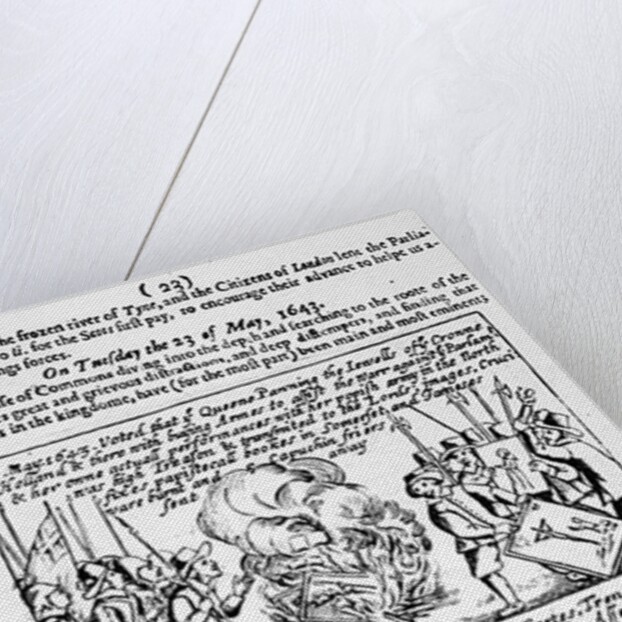 ( 23 )
he frozen river of Tyne, and the Citizens of London lent the Parlia-
o ū. for the Scots first pay, to encourage their advance to helpe us a-
ngs forces.
On Tuesday the 23 of May, 1643.
se of Commons diving into the depth and searching to the roote of the
s great and grievous distractions, and deep distempers, and finding that
s in the kingdome, have (for the most part) been main and most eminents
May. 1643. Voted that ẙ Queene Pawning the Jewells of ẙ Crowne
Holland & there with buying Armes to assist the warr against ẙ Parlamt.
& her owne actuall performances with her popish army in the North
was high Treason & transmited to the Lords, Images, Cruci
fixes papisticall bookes in Somerset and Jameses
ware burnt and Capuchin friers
sent away